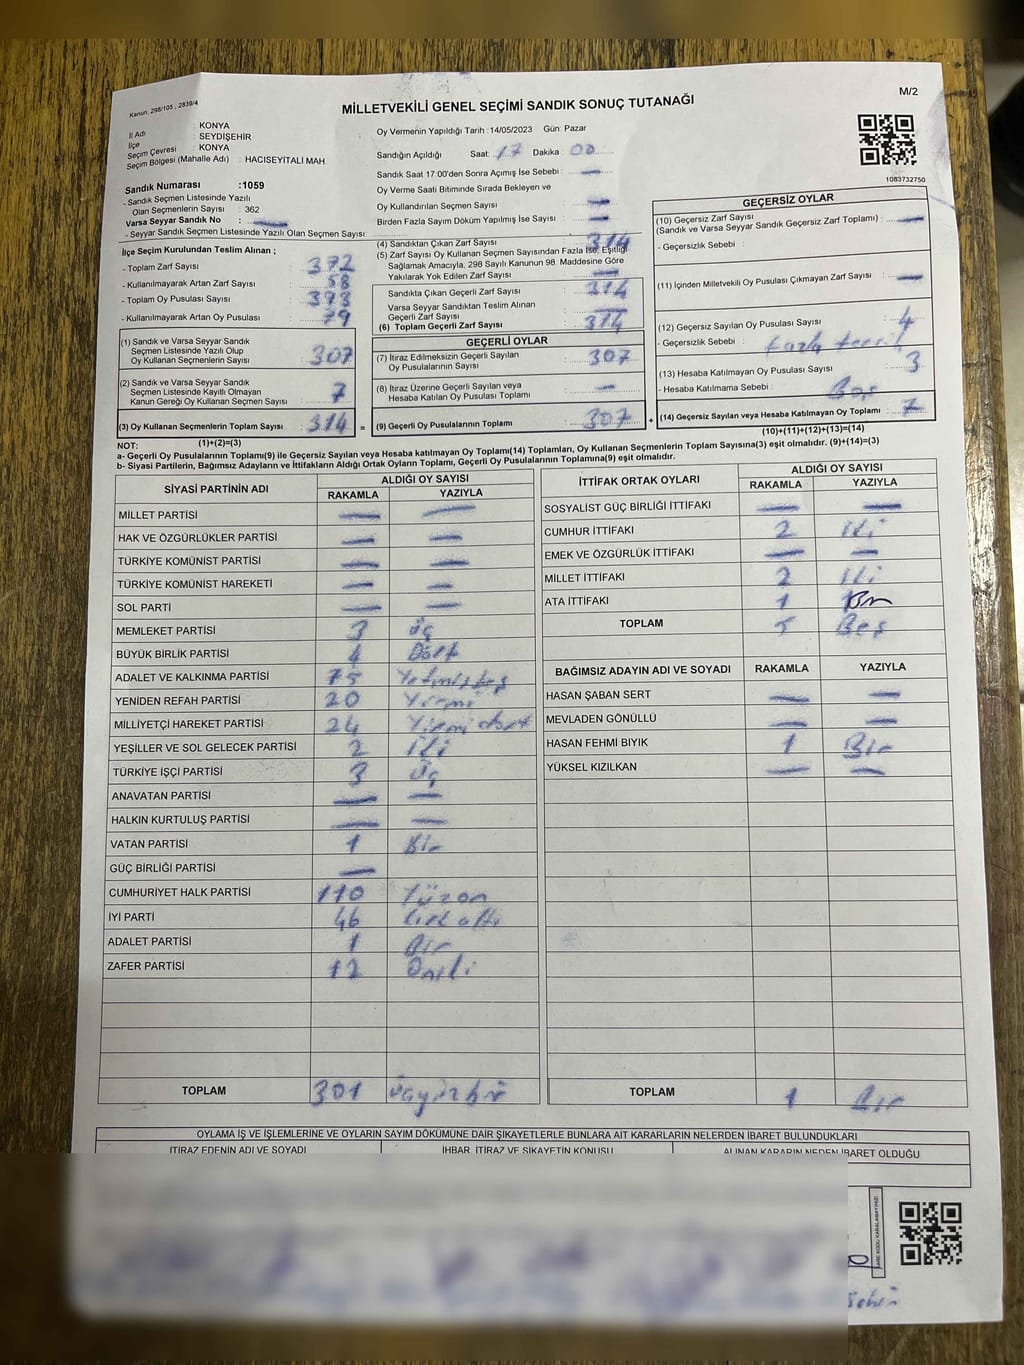 Kanun: 298/105 , 2839/4
M/2
MİLLETVEKİLİ GENEL SEÇİMİ SANDIK SONUÇ TUTANAĞI
İl Adı : KONYA
İlçe : SEYDİŞEHİR
Seçim Çevresi : KONYA
Seçim Bölgesi (Mahalle Adı) : HACISEYİTALİ MAH.
Sandık Numarası :1059
- Sandık Seçmen Listesinde Yazılı
Olan Seçmenlerin Sayısı : 362
Varsa Seyyar Sandık No : —
- Seyyar Sandık Seçmen Listesinde Yazılı Olan Seçmen Sayısı:
Oy Vermenin Yapıldığı Tarih :14/05/2023 Gün: Pazar
Sandığın Açıldığı Saat: 17 Dakika 00
Sandık Saat 17.00'den Sonra Açılmış İse Sebebi : —
Oy Verme Saati Bitiminde Sırada Bekleyen ve
Oy Kullandırılan Seçmen Sayısı : —
Birden Fazla Sayım Döküm Yapılmış İse Sayısı : —
1083732750
İlçe Seçim Kurulundan Teslim Alınan ;
- Toplam Zarf Sayısı : 372
- Kullanılmayarak Artan Zarf Sayısı : 58
- Toplam Oy Pusulası Sayısı : 393
- Kullanılmayarak Artan Oy Pusulası : 79
(1) Sandık ve Varsa Seyyar Sandık
Seçmen Listesinde Yazılı Olup
Oy Kullanan Seçmenlerin Sayısı : 307
(2) Sandık ve Varsa Seyyar Sandık
Seçmen Listesinde Kayıtlı Olmayan
Kanun Gereği Oy Kullanan Seçmen Sayısı : 7
(3) Oy Kullanan Seçmenlerin Toplam Sayısı : 314 =
(1)+(2)=(3)
(4) Sandıktan Çıkan Zarf Sayısı : 314
(5) Zarf Sayısı Oy Kullanan Seçmen Sayısından Fazla İse, Eşitliği
Sağlamak Amacıyla, 298 Sayılı Kanunun 98. Maddesine Göre
Yakılarak Yok Edilen Zarf Sayısı : —
Sandıkta Çıkan Geçerli Zarf Sayısı : 314
Varsa Seyyar Sandıktan Teslim Alınan
Geçerli Zarf Sayısı : —
(6) Toplam Geçerli Zarf Sayısı : 314
GEÇERLİ OYLAR
(7) İtiraz Edilmeksizin Geçerli Sayılan
Oy Pusulalarının Sayısı : 307
(8) İtiraz Üzerine Geçerli Sayılan veya
Hesaba Katılan Oy Pusulası Toplamı : —
(9) Geçerli Oy Pusulalarının Toplamı : 307 +
GEÇERSİZ OYLAR
(10) Geçersiz Zarf Sayısı
(Sandık ve Varsa Seyyar Sandık Geçersiz Zarf Toplamı) : —
- Geçersizlik Sebebi :
(11) İçinden Milletvekili Oy Pusulası Çıkmayan Zarf Sayısı : —
(12) Geçersiz Sayılan Oy Pusulası Sayısı : 4
- Geçersizlik Sebebi : fazla tercih
(13) Hesaba Katılmayan Oy Pusulası Sayısı : 3
- Hesaba Katılmama Sebebi : Boş
(14) Geçersiz Sayılan veya Hesaba Katılmayan Oy Toplamı : 7
(10)+(11)+(12)+(13)=(14)
NOT:
a- Geçerli Oy Pusulalarının Toplamı(9) ile Geçersiz Sayılan veya Hesaba katılmayan Oy Toplamı(14) Toplamları, Oy Kullanan Seçmenlerin Toplam Sayısına(3) eşit olmalıdır. (9)+(14)=(3)
b- Siyasi Partilerin, Bağımsız Adayların ve İttifakların Aldığı Ortak Oyların Toplamı, Geçerli Oy Pusulalarının Toplamına(9) eşit olmalıdır.
SİYASİ PARTİNİN ADI ALDIĞI OY SAYISI
RAKAMLA YAZIYLA
MİLLET PARTİSİ — —
HAK VE ÖZGÜRLÜKLER PARTİSİ — —
TÜRKİYE KOMÜNİST PARTİSİ — —
TÜRKİYE KOMÜNİST HAREKETİ — —
SOL PARTİ — —
MEMLEKET PARTİSİ 3 üç
BÜYÜK BİRLİK PARTİSİ 4 Dört
ADALET VE KALKINMA PARTİSİ 75 Yetmişbeş
YENİDEN REFAH PARTİSİ 20 Yirmi
MİLLİYETÇİ HAREKET PARTİSİ 24 Yirmi dört
YEŞİLLER VE SOL GELECEK PARTİSİ 2 iki
TÜRKİYE İŞÇİ PARTİSİ 3 üç
ANAVATAN PARTİSİ — —
HALKIN KURTULUŞ PARTİSİ — —
VATAN PARTİSİ 1 Bir
GÜÇ BİRLİĞİ PARTİSİ —
CUMHURİYET HALK PARTİSİ 110 Yüzon
İYİ PARTİ 46 kırk altı
ADALET PARTİSİ 1 Bir
ZAFER PARTİSİ 12 Oniki
TOPLAM 301 üçyüzbir
İTTİFAK ORTAK OYLARI ALDIĞI OY SAYISI
RAKAMLA YAZIYLA
SOSYALİST GÜÇ BİRLİĞİ İTTİFAKI — —
CUMHUR İTTİFAKI 2 iki
EMEK VE ÖZGÜRLÜK İTTİFAKI — —
MİLLET İTTİFAKI 2 iki
ATA İTTİFAKI 1 Bir
TOPLAM 5 Beş
BAĞIMSIZ ADAYIN ADI VE SOYADI RAKAMLA YAZIYLA
HASAN ŞABAN SERT — —
MEVLADEN GÖNÜLLÜ — —
HASAN FEHMİ BIYIK 1 Bir
YÜKSEL KIZILKAN — —
TOPLAM 1 Bir
OYLAMA İŞ VE İŞLEMLERİNE VE OYLARIN SAYIM DÖKÜMÜNE DAİR ŞİKAYETLERLE BUNLARA AİT KARARLARIN NELERDEN İBARET BULUNDUKLARI
İTİRAZ EDENİN ADI VE SOYADI İHBAR, İTİRAZ VE ŞİKAYETİN KONUSU ALINAN KARARIN NEDEN İBARET OLDUĞU